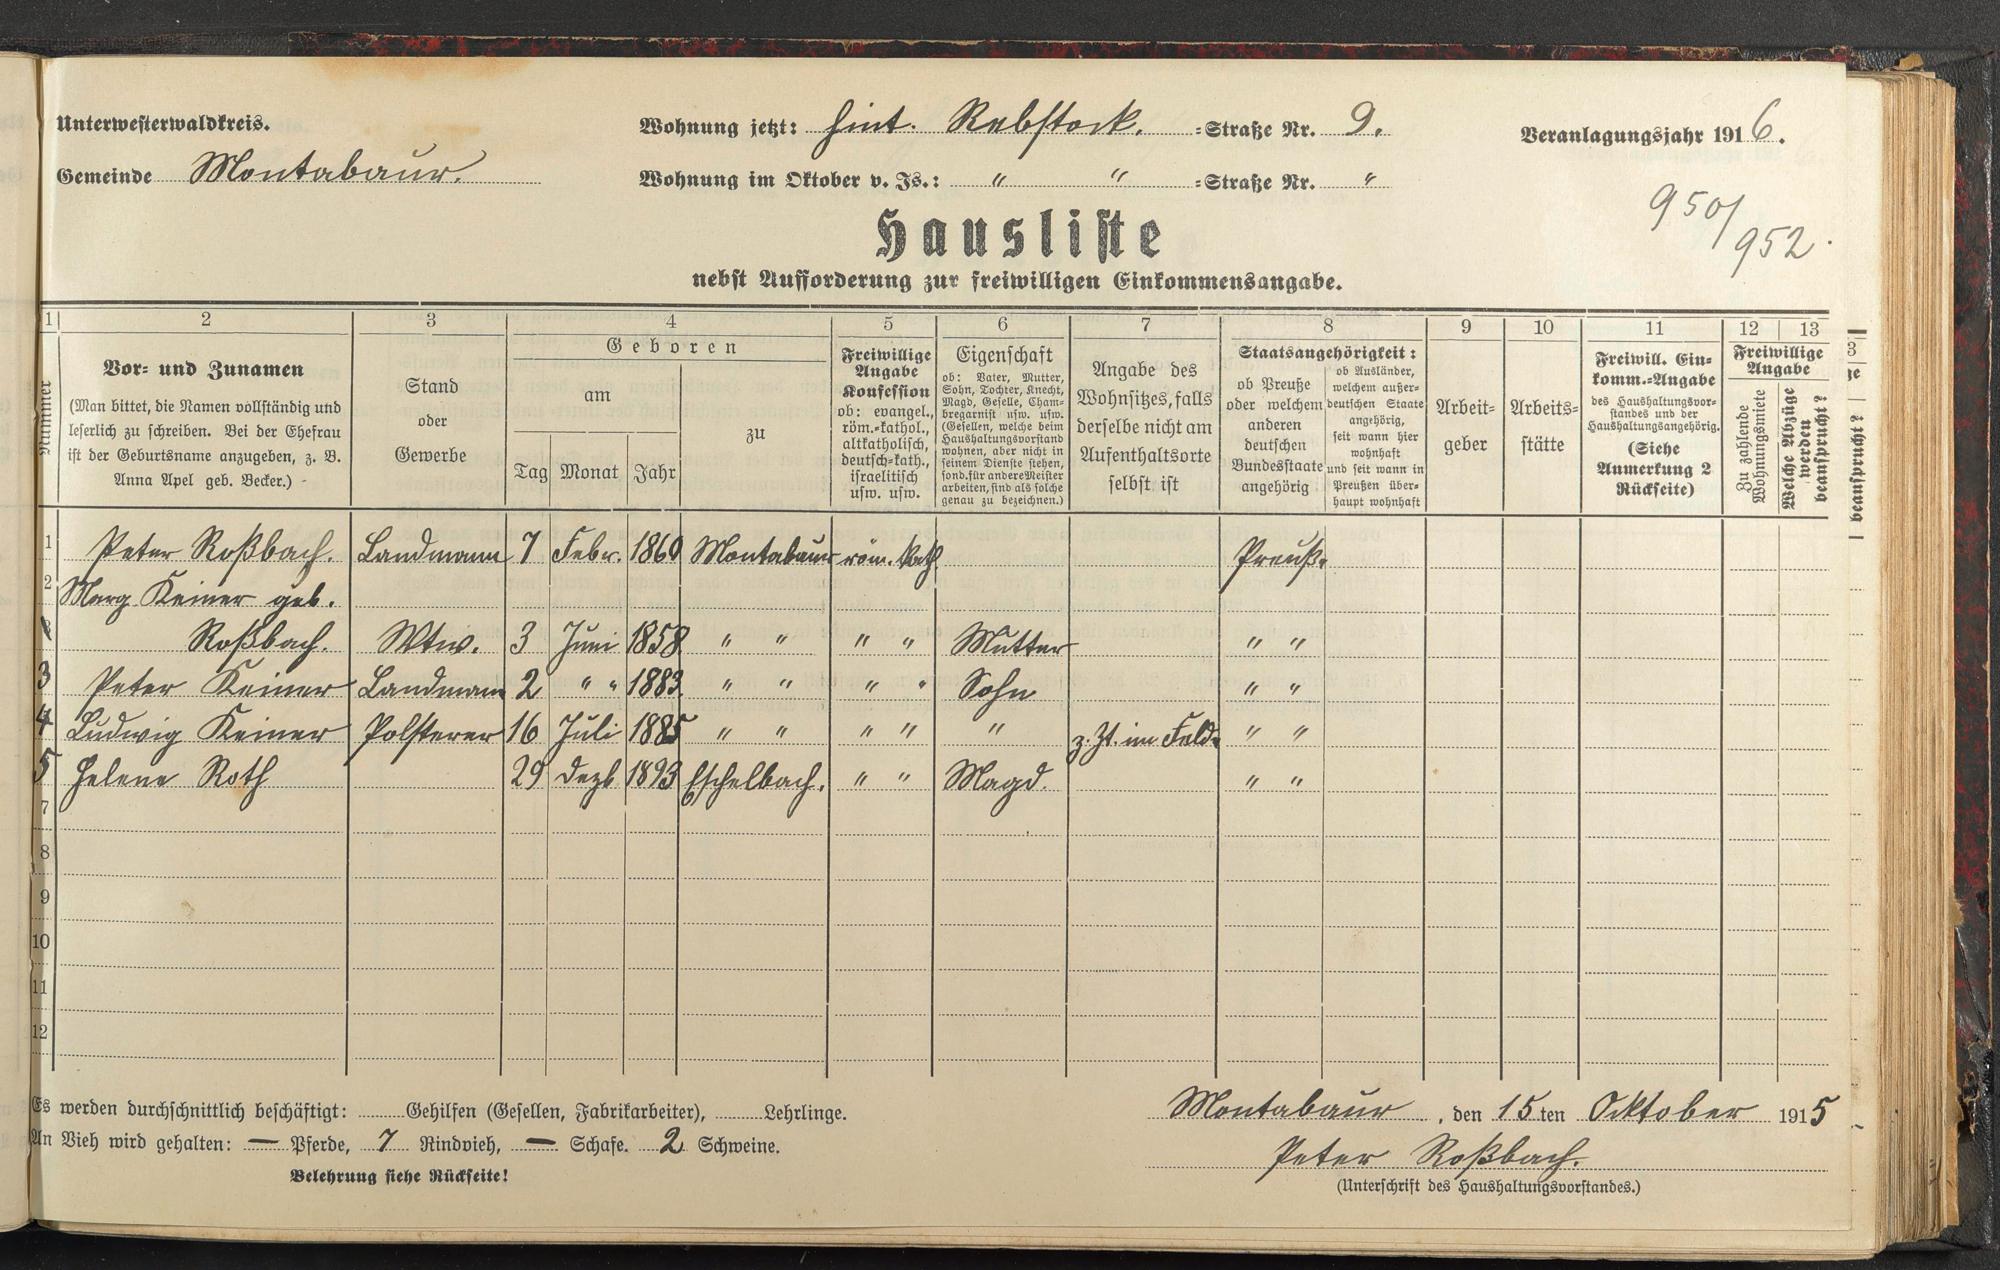 Unterwesterwaldkreis.
Gemeinde Montabaur.
Wohnung jetzt: Hint. Rebstock. -Straße Nr. 9.
Wohnung im Oktober v. Js.: " " -Straße Nr. "
Veranlagungsjahr 1916.
950/
952.
Hausliste
nebst Aufforderung zur freiwilligen Einkommensangabe.
1 2 3 4 5 6 7 8 9 10 11 12 13
Nummer
Vor- und Zunamen
(Man bittet, die Namen vollständig und
leserlich zu schreiben. Bei der Ehefrau
ist der Geburtsname anzugeben, z. B.
Anna Apel geb. Becker.)
Stand
oder
Gewerbe
Geboren
am
Tag Monat Jahr
zu
Freiwillige
Angabe
Konfession
ob: evangel.,
röm.-kathol.,
altkatholisch,
deutsch-kath.,
israelitisch
usw. usw.
Eigenschaft
ob: Vater, Mutter,
Sohn, Tochter, Knecht,
Magd, Geselle, Cham-
bregarnist usw. usw.
(Gesellen, welche beim
Haushaltungsvorstand
wohnen, aber nicht in
seinem Dienste stehen,
sond. für andere Meister
arbeiten, sind als solche
genau zu bezeichnen.)
Angabe des
Wohnsitzes, falls
derselbe nicht am
Aufenthaltsorte
selbst ist
Staatsangehörigkeit:
ob Preuße
oder welchem
anderen
deutschen
Bundesstaate
angehörig
ob Ausländer,
welchem außer-
deutschen Staate
angehörig,
seit wann hier
wohnhaft
und seit wann in
Preußen über-
haupt wohnhaft
Arbeit-
geber
Arbeits-
stätte
Freiwill. Ein-
komm.-Angabe
des Haushaltungsvor-
standes und der
Haushaltungsangehörig.
(Siehe
Anmerkung 2
Rückseite)
Freiwillige
Angabe
Zu zahlende
Wohnungsmiete
Welche Abzüge
werden
beansprucht?
3
ge
beansprucht?
1 Peter Roßbach. Landmann 7 Febr. 1860 Montabaur röm. kath. Preuß.
2 Marg Keiner geb.
Roßbach. Wtw. 3 Juni 1858 " " " " Mutter " "
3 Peter Keiner Landmann 2 " " 1883 " " " " Sohn " "
4 Ludwig Keiner Polsterer 16 Juli 1885 " " " " " z. Zt. im Felde " "
5 Helene Roth 29 Dezb 1893 Eschelbach. " " Magd. " "
7
8
9
10
11
12
Es werden durchschnittlich beschäftigt: Gehilfen (Gesellen, Fabrikarbeiter), Lehrlinge.
An Vieh wird gehalten: — Pferde, 7 Rindvieh, — Schafe. 2 Schweine.
Belehrung siehe Rückseite!
Montabaur, den 15ten Oktober 1915
Peter Roßbach.
(Unterschrift des Haushaltungsvorstandes.)